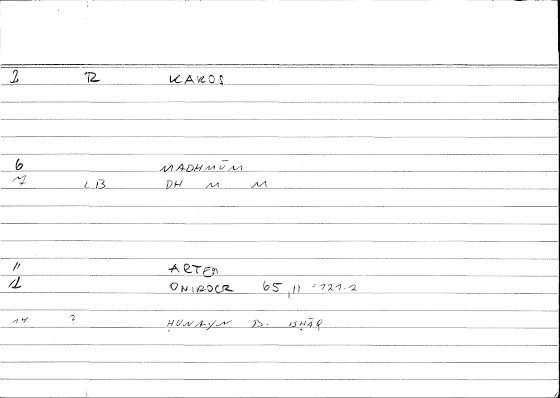 2 R KAROS
6 MADHMŪM
7 LB DH M M
11 ARTEM
1 ONIROCR 65,11 = 121.2
14 ? ḤUNAYN B. ISḤĀQ